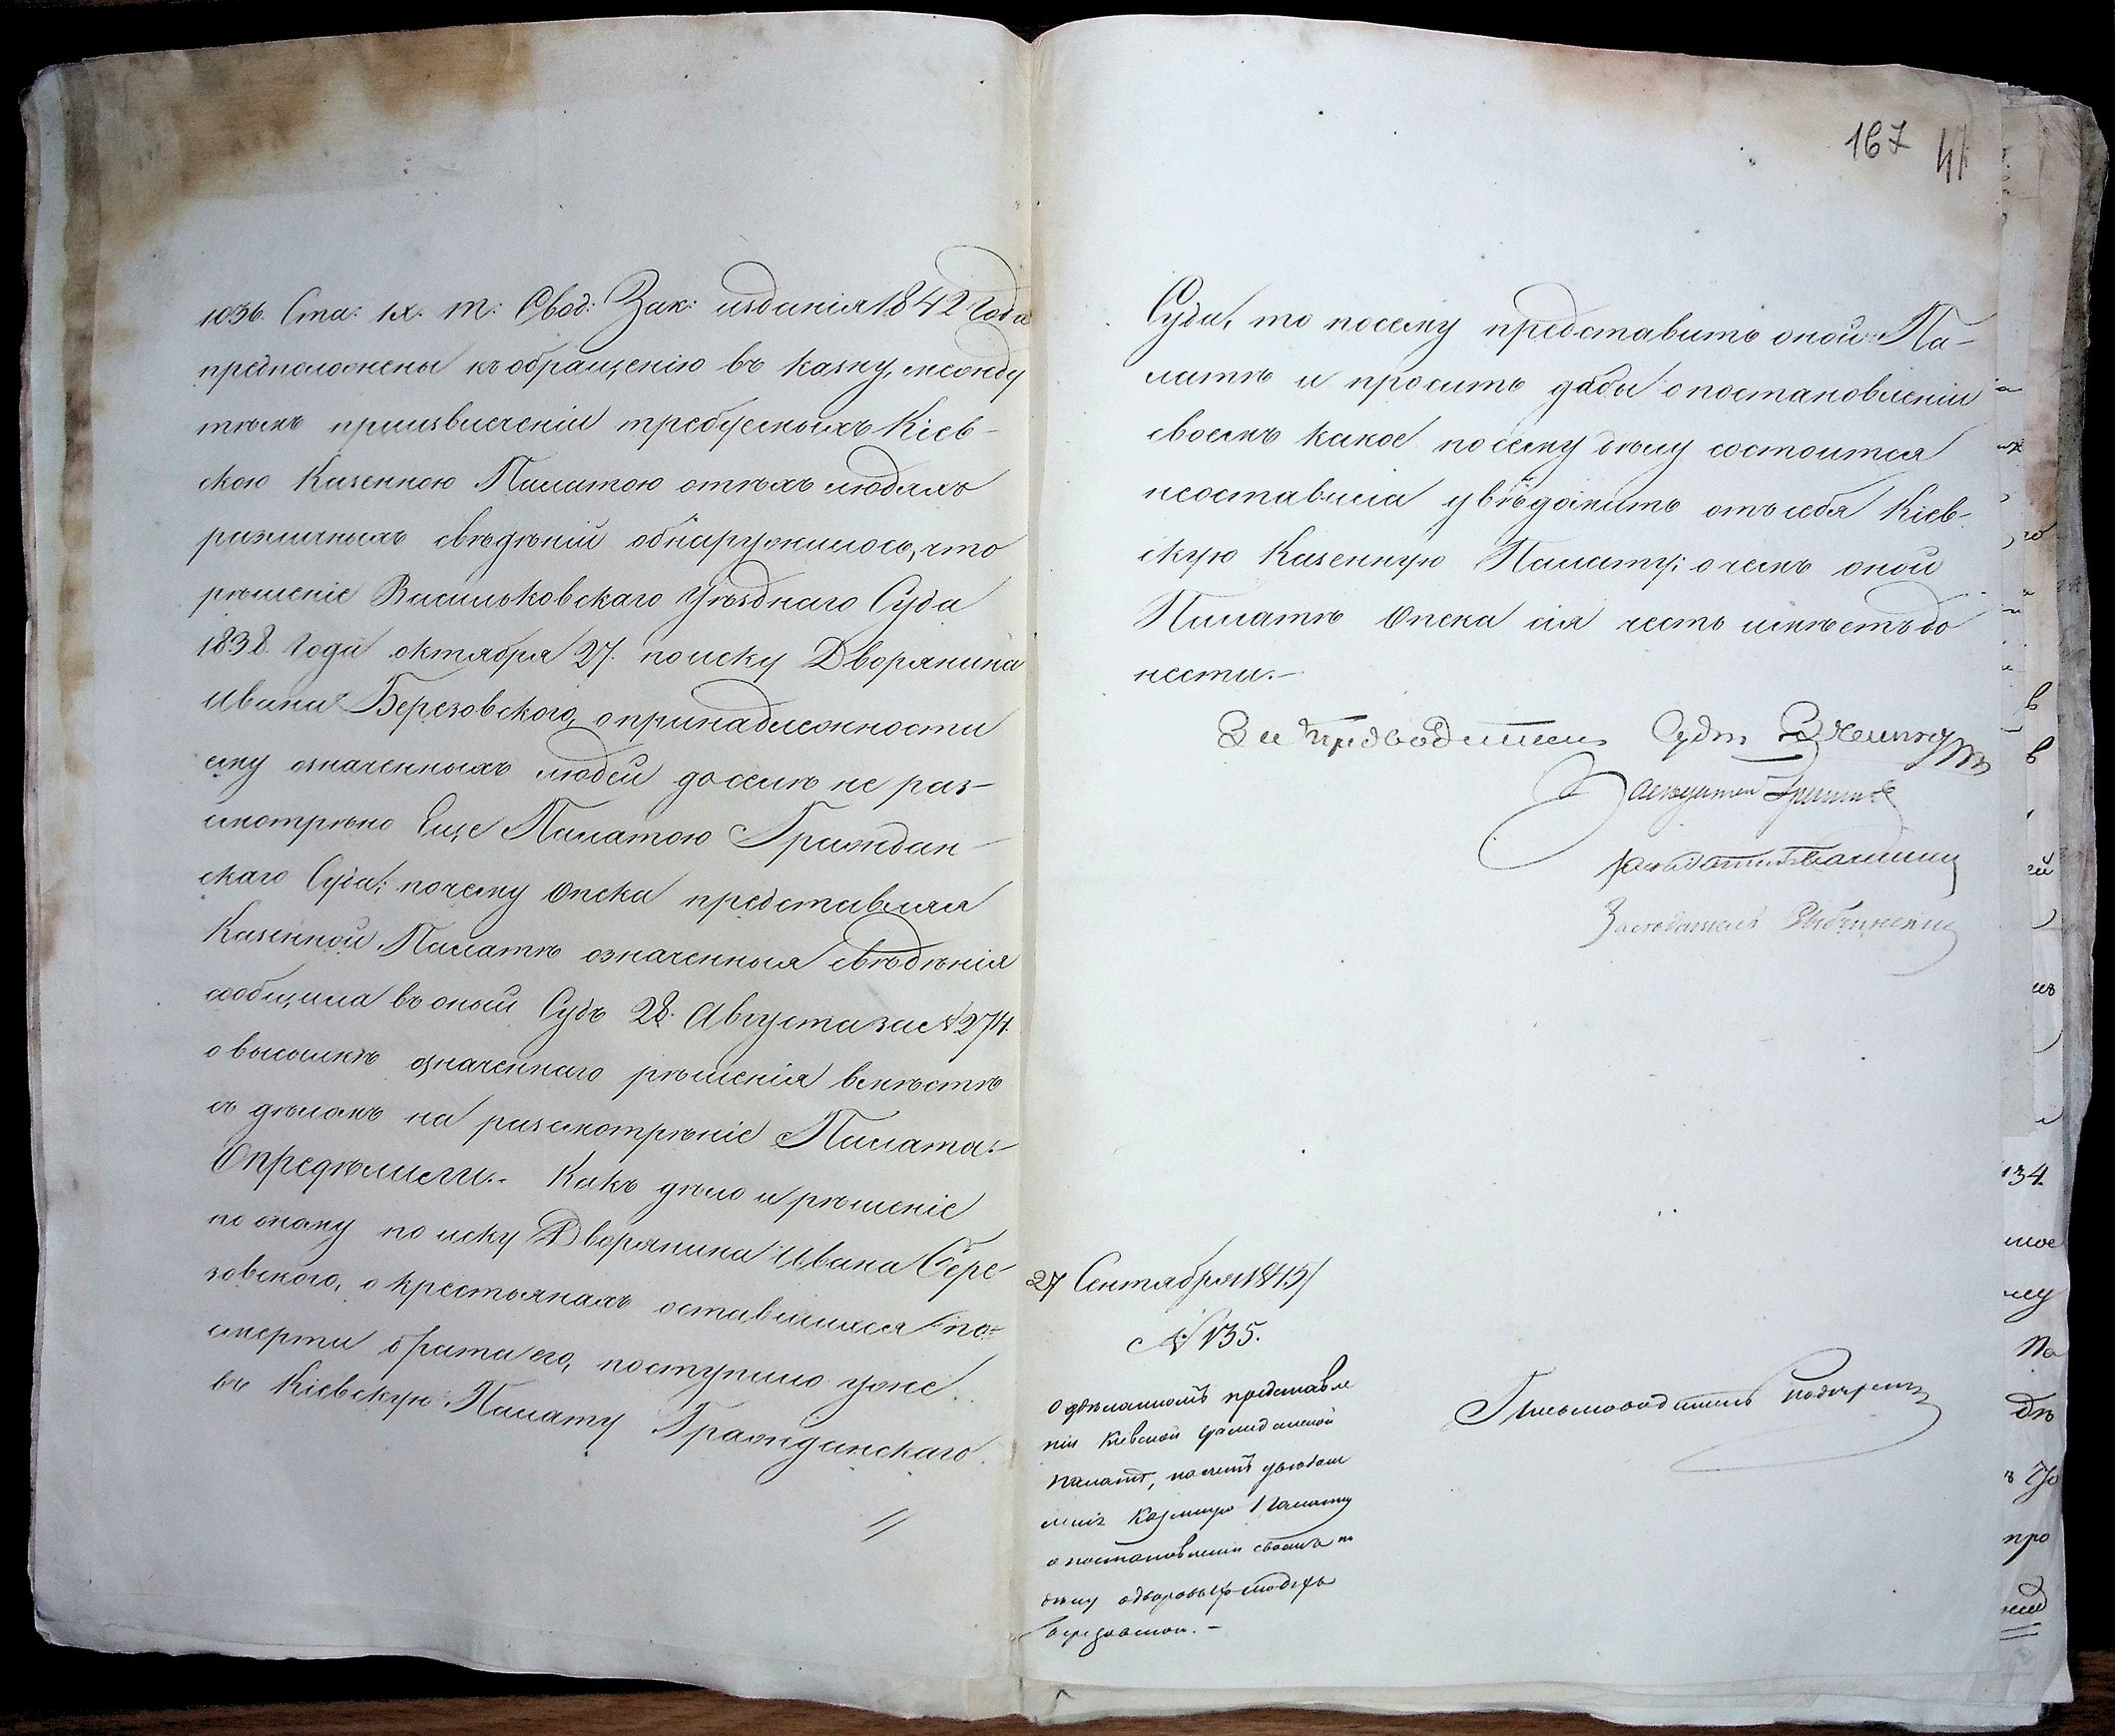 1036. Ста: IX. т: Свод: Зак: изданія 1842 Года
предположены къ обращенію въ казну, между
тѣмъ приизвлеченіи требуемыхъ Кіев-
скою Казенною Палатою отѣхъ людяхъ
различныхъ свѣдѣній обнаружилось, что
рѣшеніе Васильковскаго Уѣзднаго Суда
1838. Года октября 27. по иску Дворянина
Ивана Березовского, о принадлежности
ему означенныхъ людей доселѣ не раз-
смотрѣно Еще Палатою Граждан-
скаго Суда; почему Опека представляя
Казенной Палатѣ означенныя свѣдѣнія
сообщила въ оный Судъ 28. Августа за № 274.
о высылкѣ означеннаго рѣшенія вмѣстѣ
съ дѣломъ на разсмотрѣніе Палаты:
Опредѣлили:. Какъ дѣло и рѣшеніе
по оному по иску Дворянина Ивана Бере
зовского, о крестьянахъ оставшихся по
смерти брата его, поступило уже
въ Кіевскую Палату Гражданскаго
167 41
Суда, то посему представить оной Па-
латѣ и просить дабы о постановленіи
своемъ какое по сему дѣлу состоится
неоставила увѣдомить отъ себя Кіев-
скую Казенную Палату; о чемъ оной
Палатѣ Опека сія честь имѣетъ до
нести.-
За Предводителя Судья
Засѣдатель
Засѣдатель
Засѣдатель
27 Сентября 1845
№ 135.
О дѣланномъ представле
ніи Кіевской Гражданской
Палатѣ, насчетъ увѣдом
ленія Казенную Палату
о постановленіи своемъ по
дѣлу о дворовыхъ людяхъ
Березовском. -
Письмоводитель